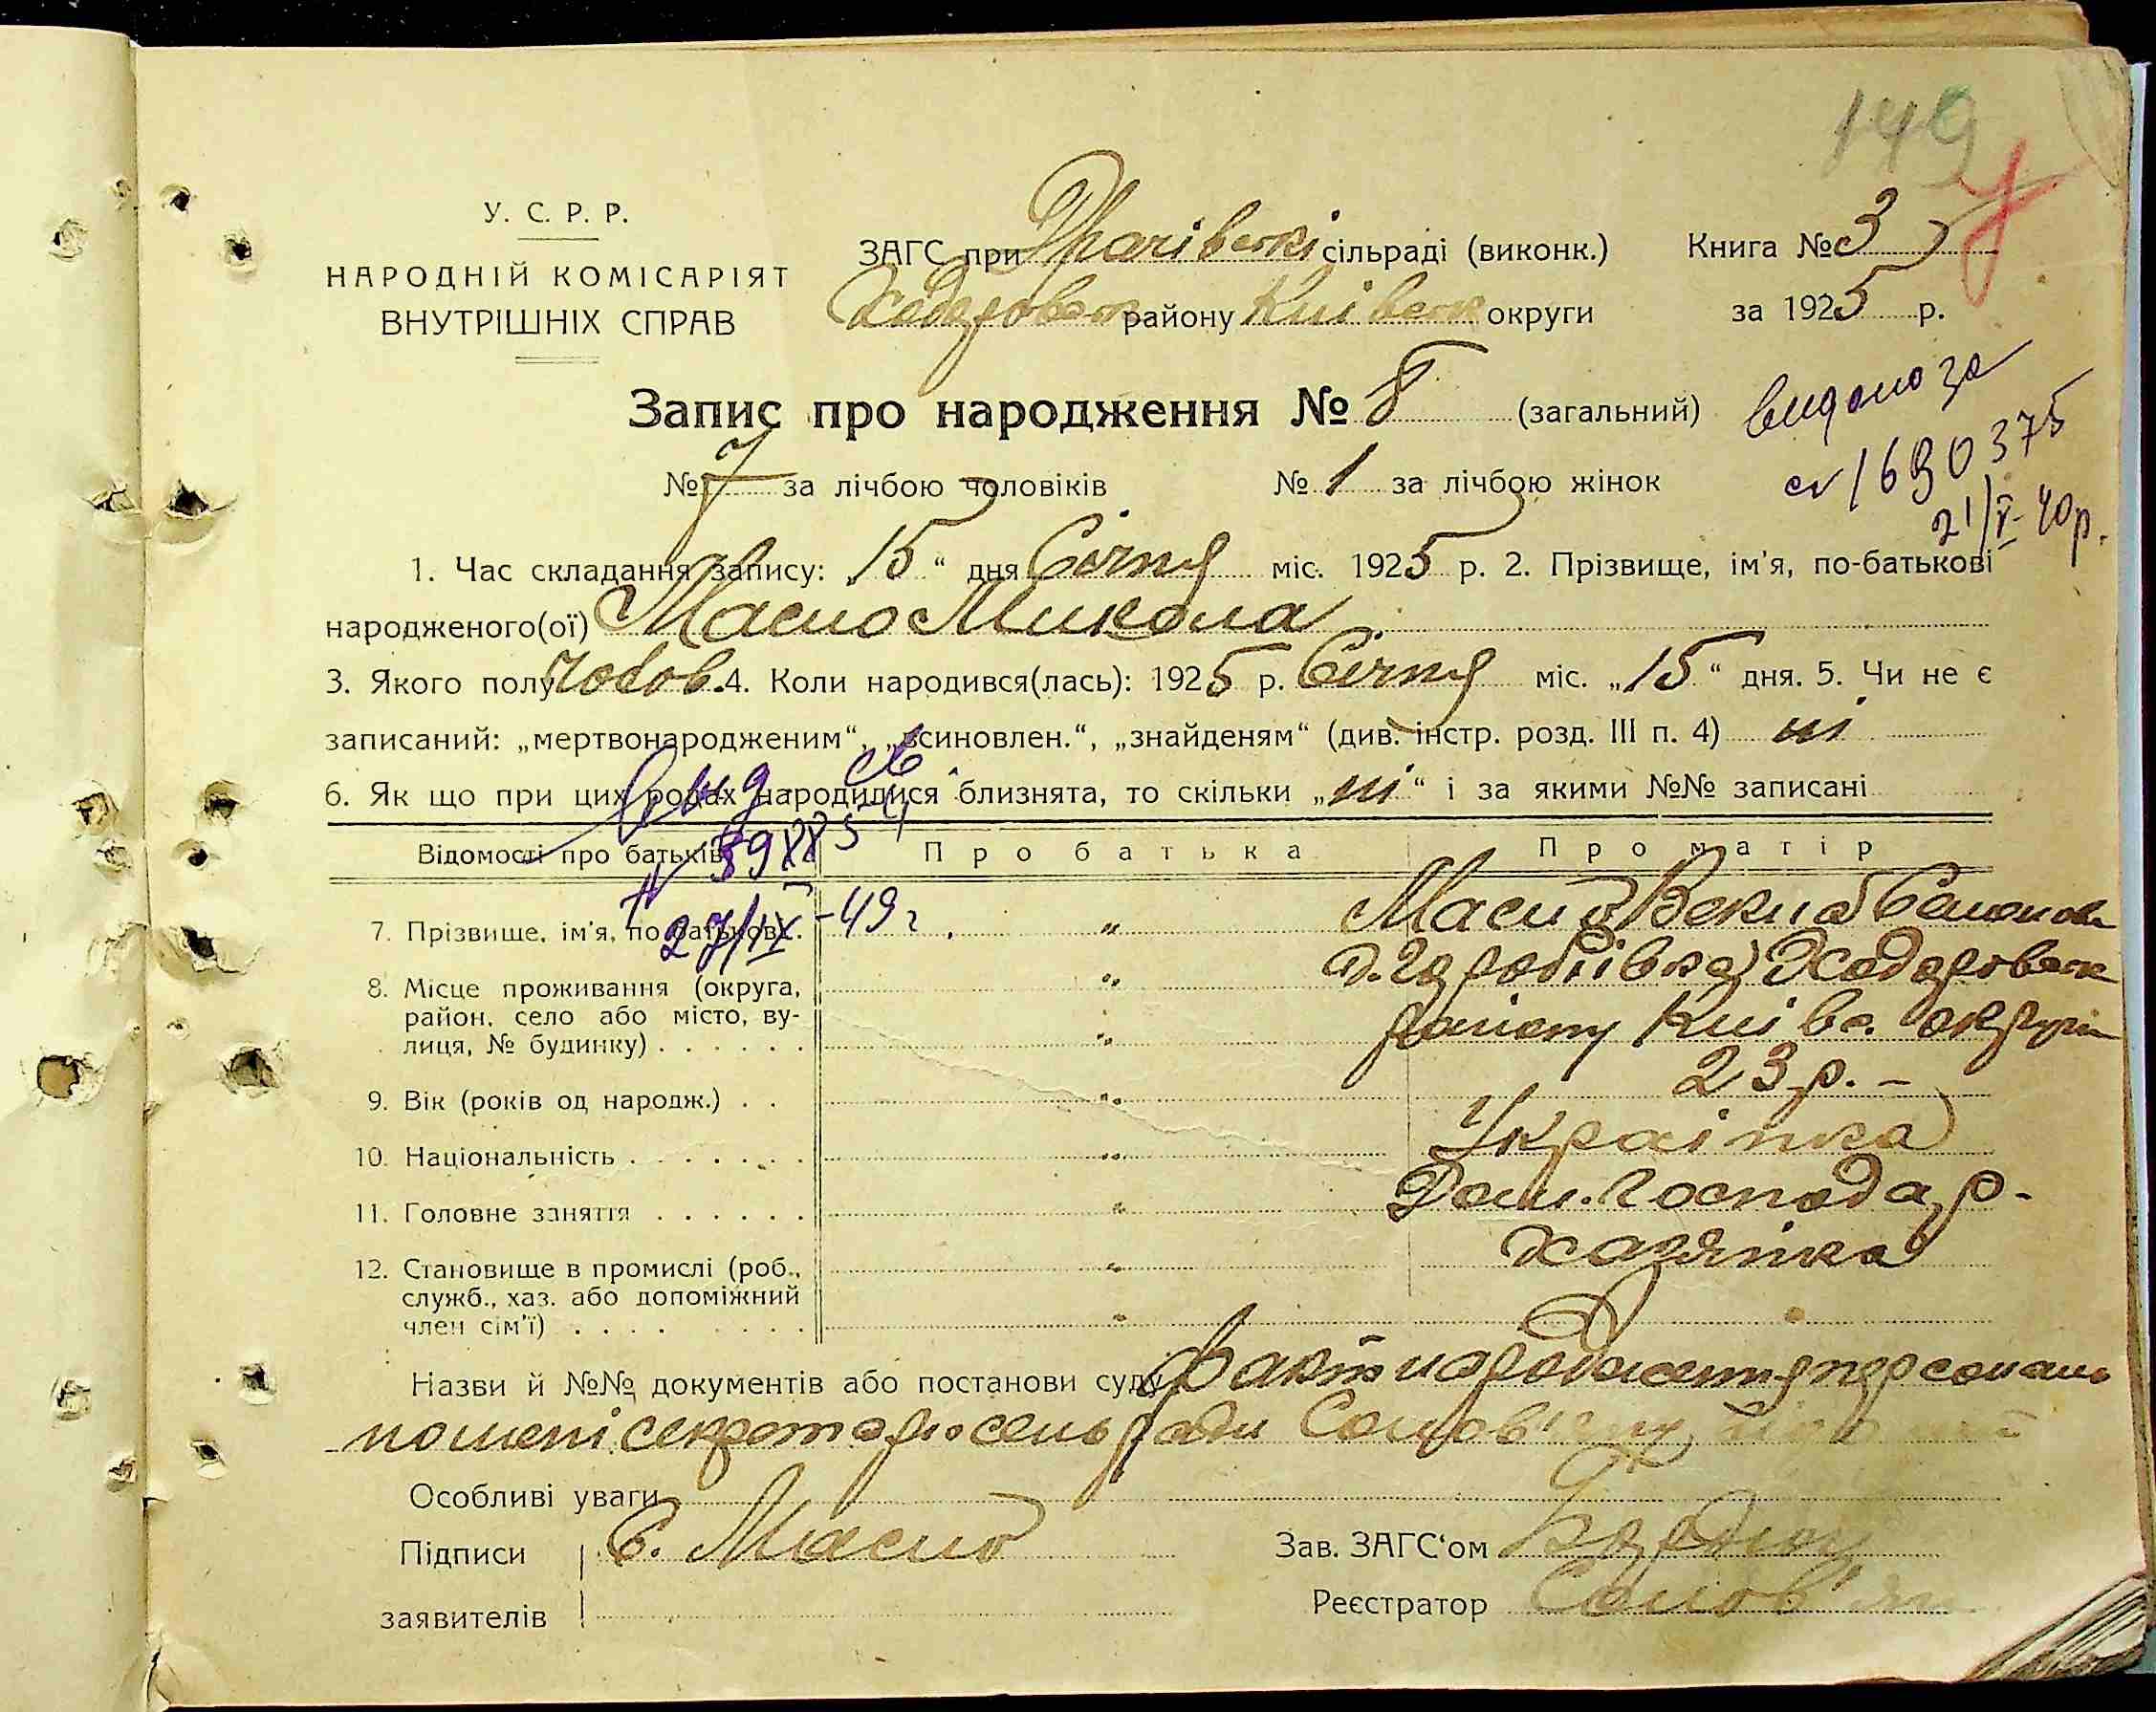 149
У. С. Р. Р.
НАРОДНІЙ КОМІСАРІЯТ
ВНУТРІШНІХ СПРАВ
ЗАГС при сільраді (виконк.) Книга № 3
району Київськ округи за 1925 р.
Запис про народження № 8 (загальний)
видано за
№ 7 за лічбою чоловіків № 1 за лічбою жінок
1690375
21/V-40р.
1. Час складання запису: „15“ дня Січня міс. 1925 р. 2. Прізвище, ім'я, по-батькові
народженого(ої) Масло Микола
3. Якого полу чолов. 4. Коли народився(лась): 1925 р. Січня міс. „15“ дня. 5. Чи не є
записаний: „мертвонародженим“, „всиновлен.“, „знайденям“ (див. інстр. розд. III п. 4) ні
6. Як що при цих родах народилися близнята, то скільки „ні“ і за якими №№ записані
Відомості про батьків Про батька Про матір
27/IX-49 г.
7. Прізвище, ім'я, по батькові. " Масло Векла Семенов
8. Місце проживання (округа, район, село або місто, вулиця, № будинку) . . . . . . " Ходоровськ
району Київс. округи
9. Вік (років од народж.) . . " 23 р. –
10. Національність . . . . . . . " Українка
11. Головне заняття . . . . . . " Дом. господар.
12. Становище в промислі (роб., " хазяйка
служб., хаз. або допоміжний
член сім'ї) . . . . . . . . "
Назви й №№ документів або постанови суду факт народження персональ
секретарю сельради Солов'яну
Особливі уваги
Підписи Є. Масло Зав. ЗАГС'ом
заявителів Реєстратор Солов'ян